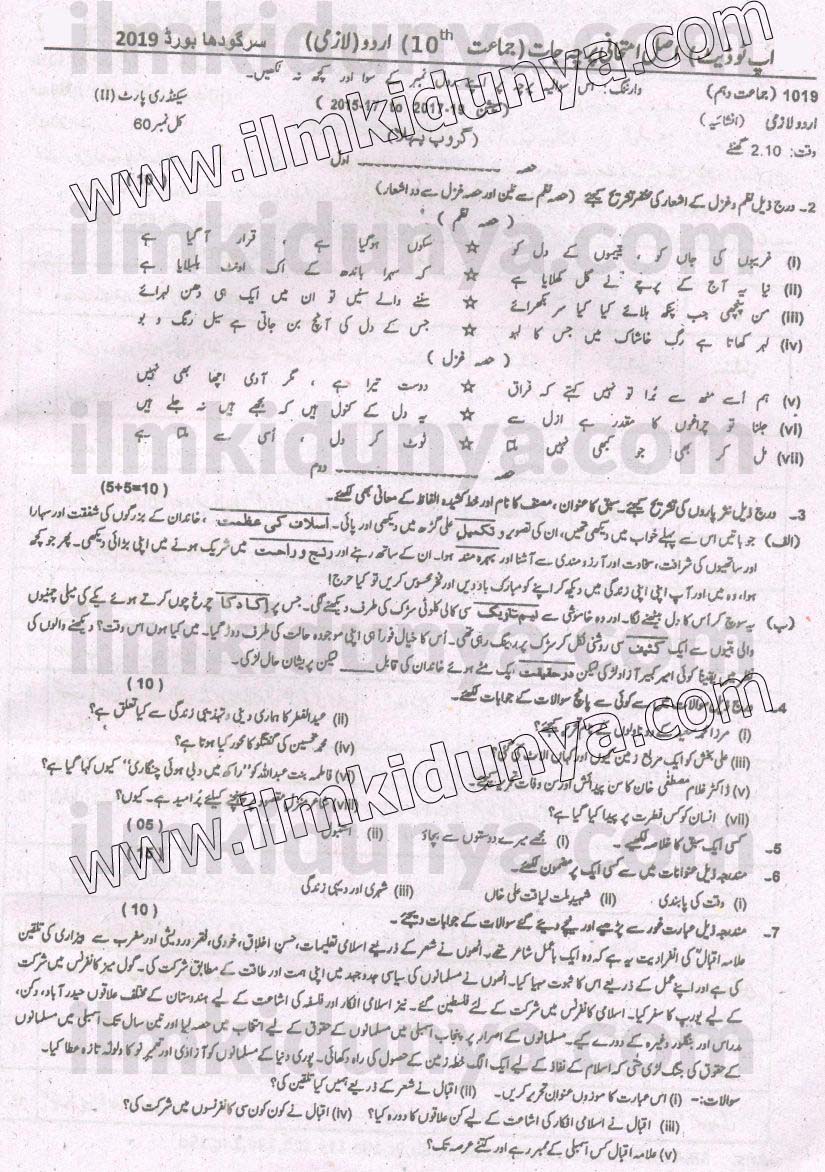 www.ilmkidunya.com
اپ ٹو ڈیٹ اصل امتحانی پرچہ جات (جماعت 10th) اردو (لازمی) سرگودھا بورڈ 2019
1019 (جماعت دہم) وارننگ: اس سوالیہ پرچہ پر اپنے رول نمبر کے سوا اور کچھ نہ لکھیں۔ سیکنڈری پارٹ (II)
اردو لازمی (انشائیہ) (سیشن 2015-17 to 2017-19) کل نمبر 60
وقت: 2.10 گھنٹے (گروپ پہلا)
حصہ اول
2۔ درج ذیل نظم و غزل کے اشعار کی مختصر تشریح کیجئے (حصہ نظم سے تین اور حصہ غزل سے دو اشعار) (10)
(حصہ نظم)
(i) غریبوں کی جاں کو ، یتیموں کے دل کو ☆ سکوں ہوگیا ہے ، قرار آ گیا ہے
(ii) نیا یہ آج کے پرچے نے گل کھلایا ہے ☆ کہ سہرا باندھ کے اک اونٹ بلبلایا ہے
(iii) من پنچھی جب پنکھ ہلائے کیا کیا سر بکھرائے ☆ سننے والے سنیں تو ان میں ایک ہی دھن لہرائے
(iv) لہر کھاتا ہے رگ خاشاک میں جس کا لہو ☆ جس کے دل کی آنچ بن جاتی ہے سیل رنگ و بو
(حصہ غزل)
(v) ہم اُسے منھ سے بُرا تو نہیں کہتے کہ فراق ☆ دوست تیرا ہے ، مگر آدمی اچھا بھی نہیں
(vi) جلنا تو چراغوں کا مقدر ہے ازل سے ☆ یہ دل کے کنول ہیں کہ بجھے ہیں نہ جلے ہیں
(vii) مل کر بھی جو کبھی نہیں ملتا ☆ ٹوٹ کر دل ، اُسی سے ملتا ہے
حصہ دوم
3۔ درج ذیل نثر پاروں کی تشریح کیجئے۔ سبق کا عنوان، مصنف کا نام اور خط کشیدہ الفاظ کے معانی بھی لکھئے۔ (5+5=10)
(الف) جو باتیں اس سے پہلے خواب میں دیکھی تھیں، ان کی تصویر و تکمیل علی گڑھ میں دیکھی اور پائی۔ اسلاف کی عظمت، خاندان کے بزرگوں کی شفقت اور سہارا
اور ساتھیوں کی شرافت، سخاوت اور آرزو مندی سے آشنا اور بہرہ مند ہوا۔ ان کے ساتھ رہنے اور رنج و راحت میں شریک ہونے میں اپنی بڑائی دیکھی۔ پھر جو کچھ
ہوا، وہ میں اور آپ اپنی اپنی زندگی میں دیکھ کر اپنے کو مبارک باد دیں اور فخر محسوس کریں تو کیا حرج!
(ب) یہ سوچ کر اُس کا دل بیٹھنے لگا۔ اور وہ خاموشی سے نیم تاریک سی کالی کلوٹی سڑک کی طرف دیکھنے لگی۔ جس پر اکا دکا چرخ چوں کرتے ہوئے یکے کی میلی چمنیوں
والی بتیوں سے ایک کثیف سی روشنی نکل کر سڑک پر رینگ رہی تھی۔ اُس کا خیال فوراً ہی اپنی موجودہ حالت کی طرف دوڑ گیا۔ میں کیا ہوں اس وقت؟ دیکھنے والوں کی
نظر میں یقیناً کوئی امیر کبیر آزاد لڑکی لیکن در حقیقت ایک مٹے ہوئے خاندان کی قابل ____ لیکن پریشان حال لڑکی۔
4۔ درج ذیل سوالات میں سے کوئی سے پانچ سوالات کے جوابات لکھئے۔ (10)
(i) مرزا محمد سعید کے دو ناولوں کے نام تحریر کیجئے؟ (ii) عید الفطر کا ہماری دینی و تہذیبی زندگی سے کیا تعلق ہے؟
(iii) علی بخش کو ایک مربع زمین کیوں اور کہاں الاٹ کی گئی؟ (iv) محمد حسین کی گفتگو کا محور کیا ہوتا ہے؟
(v) ڈاکٹر غلام مصطفیٰ خان کا سن پیدائش اور سن وفات تحریر کیجئے۔ (vi) فاطمہ بنت عبداللہ کو "راکھ میں دبی ہوئی چنگاری" کیوں کہا گیا ہے؟
(vii) انسان کو کس فطرت پر پیدا کیا گیا ہے؟ (viii) شاعر منزل مقصود پر پہنچنے کیلئے پُر امید ہے۔ کیوں؟
5۔ کسی ایک سبق کا خلاصہ لکھیے۔ (i) مجھے میرے دوستوں سے بچاؤ (ii) استنبول (05)
6۔ مندرجہ ذیل عنوانات میں سے کسی ایک پر مضمون لکھئے۔ (15)
(i) وقت کی پابندی (ii) شہید ملت لیاقت علی خاں (iii) شہری اور دیہی زندگی
7۔ مندرجہ ذیل عبارت غور سے پڑھیے اور نیچے دیئے گئے سوالات کے جوابات دیجئے۔ (10)
علامہ اقبالؒ کی انفرادیت یہ ہے کہ وہ ایک باعمل شاعر تھے۔ انھوں نے شعر کے ذریعے اسلامی تعلیمات، حسن اخلاق، خودی، فقر و درویشی اور مغرب سے بیزاری کی تلقین
کی ہے اور اپنے عمل کے ذریعے اس کا ثبوت مہیا کیا۔ انھوں نے مسلمانوں کی سیاسی جدوجہد میں اپنی ہمت اور طاقت کے مطابق شرکت کی۔ گول میز کانفرنس میں شرکت
کے لیے یورپ کا سفر کیا۔ اسلامی کانفرنس میں شرکت کے لئے فلسطین گئے۔ نیز اسلامی افکار اور فلسفہ کی اشاعت کے لیے ہندوستان کے مختلف علاقوں حیدر آباد، دکن،
مدراس اور بنگلور وغیرہ کے دورے کیے۔ مسلمانوں کے اصرار پر پنجاب اسمبلی میں مسلمانوں کے حقوق کے لیے انتخاب میں حصہ لیا اور تین سال تک اسمبلی میں مسلمانوں
کے حقوق کی جنگ لڑی حتیٰ کہ اسلام کے نفاذ کے لیے ایک الگ خطہ زمین کے حصول کی راہ دکھائی۔ پوری دنیا کے مسلمانوں کو آزادی اور تعمیر نو کا ولولہ تازہ عطا کیا۔
سوالات:- (i) اس عبارت کا موزوں عنوان تحریر کریں۔ (ii) اقبال نے شعر کے ذریعے ہمیں کیا تلقین کی؟
(iii) اقبال نے اسلامی افکار کی اشاعت کے لیے کن علاقوں کا دورہ کیا؟ (iv) اقبال نے کون کون سی کانفرنسوں میں شرکت کی؟
(v) علامہ اقبال کس اسمبلی کے ممبر رہے اور کتنے عرصہ تک؟